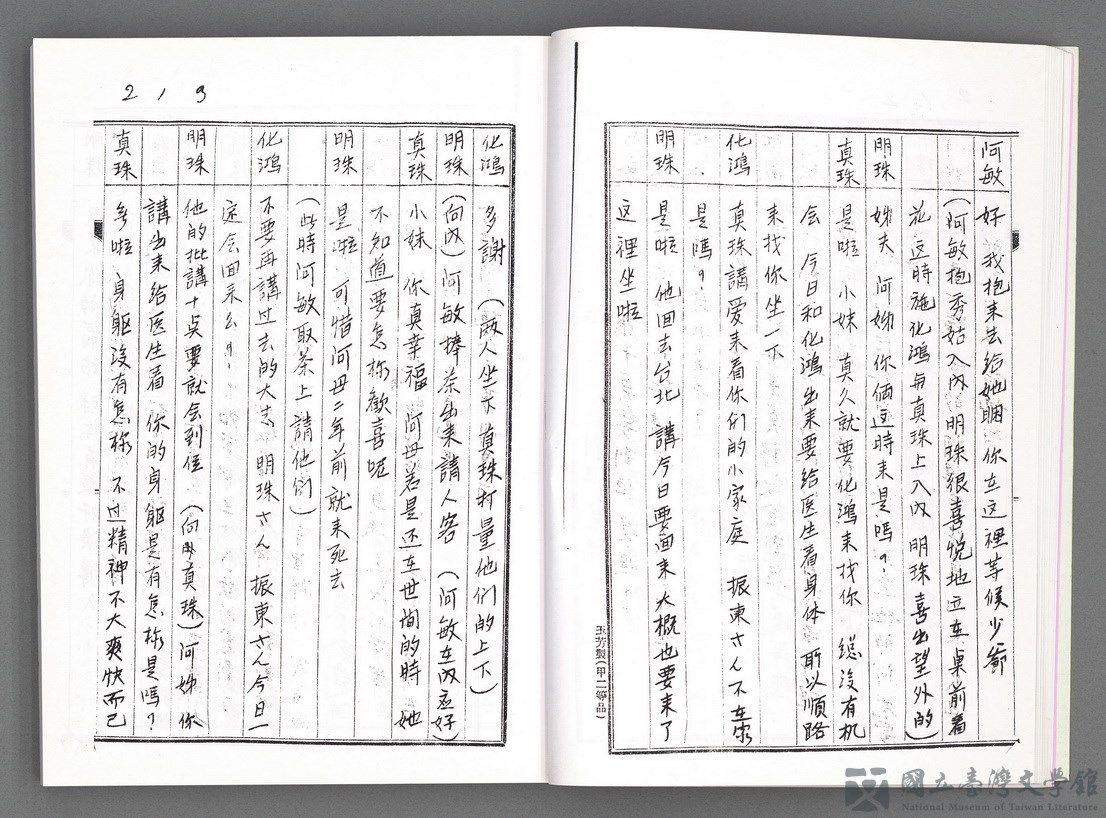 阿敏 好 我抱来去给她睏 你在这裡等候少爺
(阿敏抱秀姑入內 明珠很喜悦地立在桌前看
花 这時施化鴻与真珠上入內 明珠喜出望外的)
明珠 姊夫 阿姊 你倆这時来是嗎?
真珠 是啦 小妹 真久就要化鴻来找你 総没有机
会 今日和化鴻出来要给医生看身体 所以順路
来找你坐一下
化鴻 真珠講爱来看你们的小家庭 振東さん不在家
是嗎?
明珠 是啦 他回去台北 講今日要回来 大概也要来了
这裡坐啦
玉芳製(甲二等品)
219
化鴻 多謝 (两人坐下 真珠打量他们的上下)
明珠 (向內)阿敏捧茶出来請人客 (阿敏在內应好)
真珠 小妹 你真幸福 阿母若是还在世間的時 她
不知道要怎樣歡喜呢
明珠 是啦 可惜阿母二年前就来死去
(此時阿敏取茶上請他们)
化鴻 不要再講过去的大志 明珠さん 振東さん今日一
定会回来么?
明珠 他的批講十点要就会到位 (向真珠)阿姊 你
講出来给医生看 你的身軀是有怎樣是嗎?
真珠 多啦 身軀没有怎樣 不过精神不大爽快而已
國立臺灣文學館
National Museum of Taiwan Literature